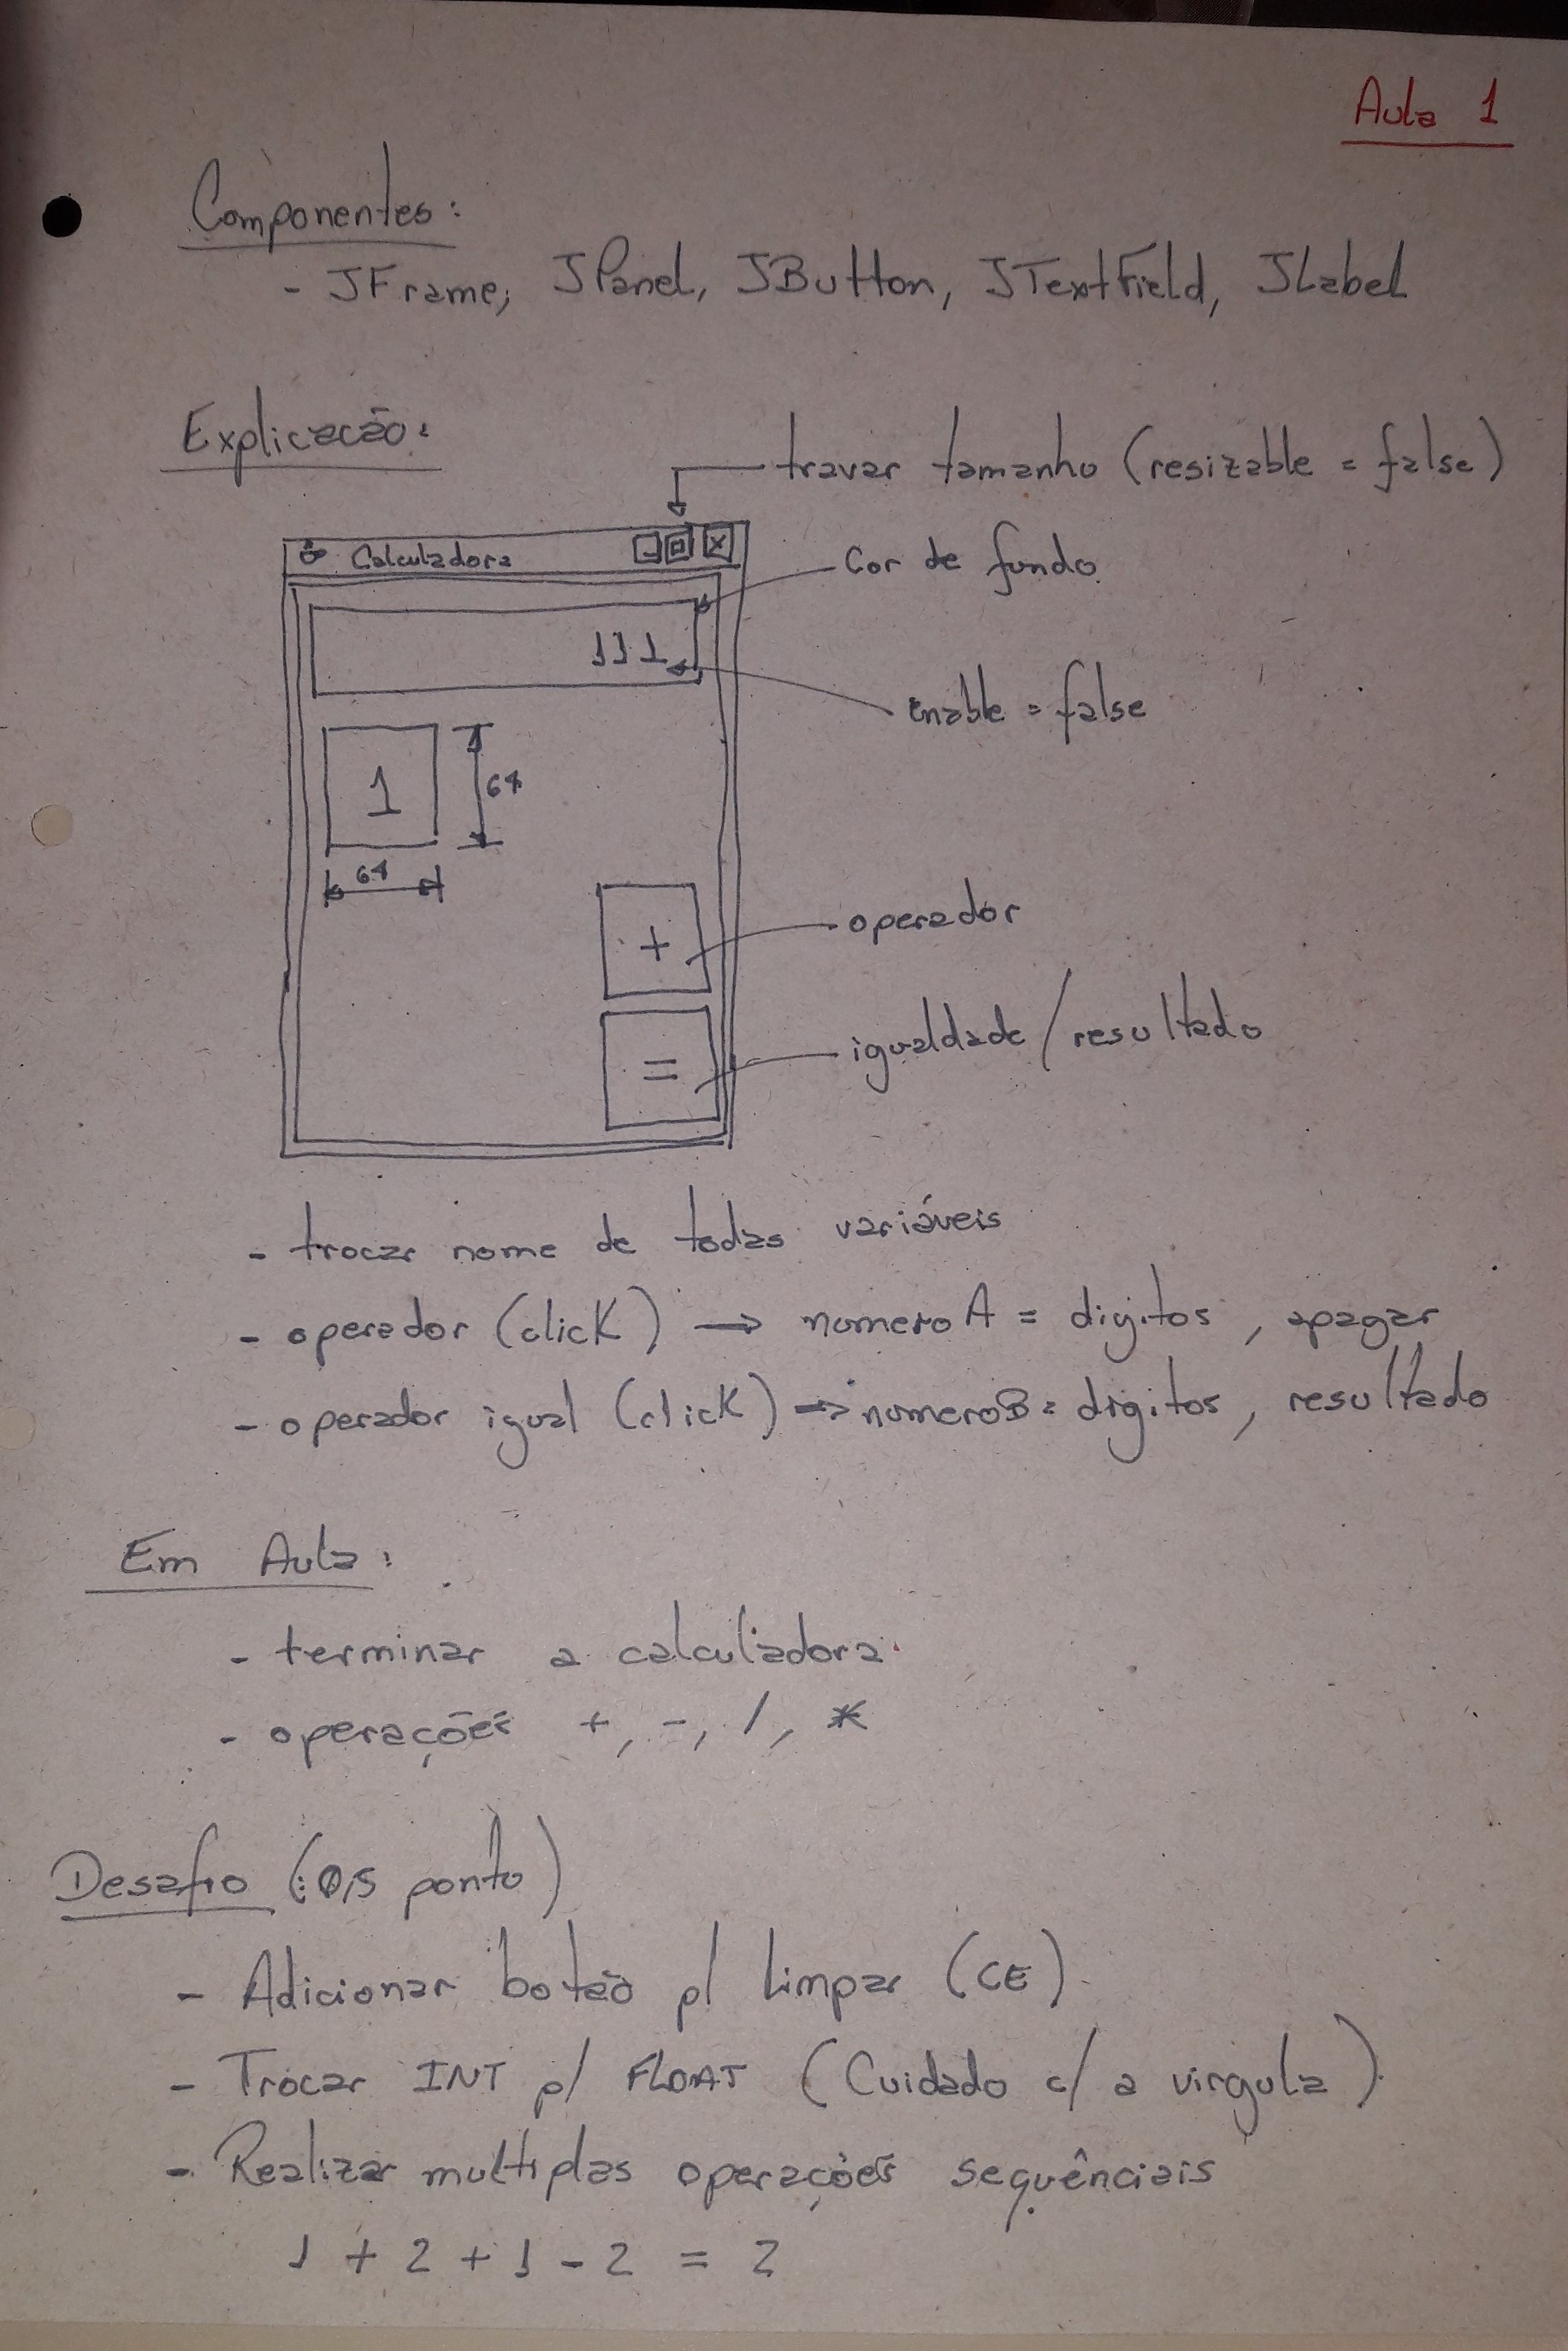 Aula 1
Componentes:
- JFrame, JPanel, JButton, JTextField, JLabel
Explicação:
travar tamanho (resizable = false)
Calculadora
Cor de fundo
111
enable = false
1
64
64
+
operador
=
igualdade / resultado
- trocar nome de todas variáveis
- operador (click) → numero A = digitos, apagar
- operador igual (click) → numero B = digitos, resultado
Em Aula:
- terminar a calculadora
- operações +, -, /, *
Desafio (0,5 ponto)
- Adicionar botão p/ Limpar (CE)
- Trocar INT p/ FLOAT (Cuidado c/ a virgula)
- Realizar multiplas operações sequênciais
1 + 2 + 1 - 2 = 2